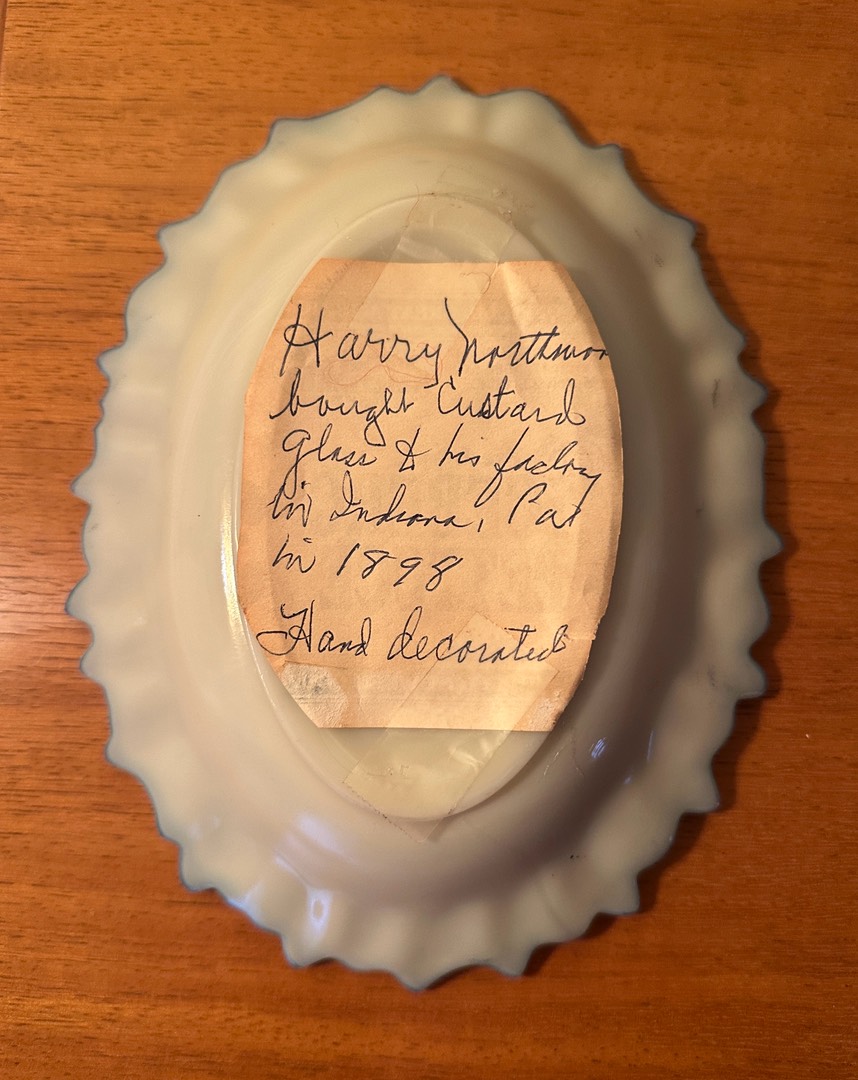 Harry Northwoo
bought Custard
Glass to his factory
in Indiana, Pa
in 1898
Hand decorated